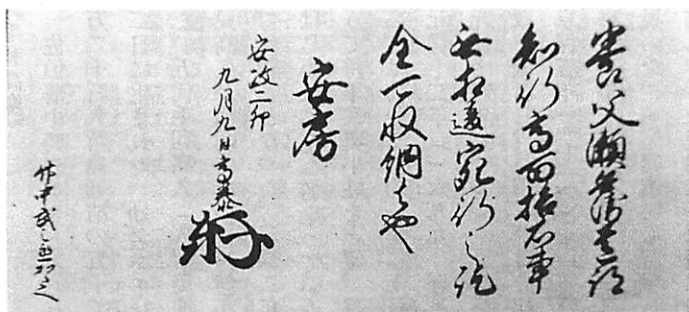 養父瀬兵衛
知行高百拾石事
無相違宛行之訖
全可収納者也
安房
安政二卯
九月九日高泰
竹中武之丞